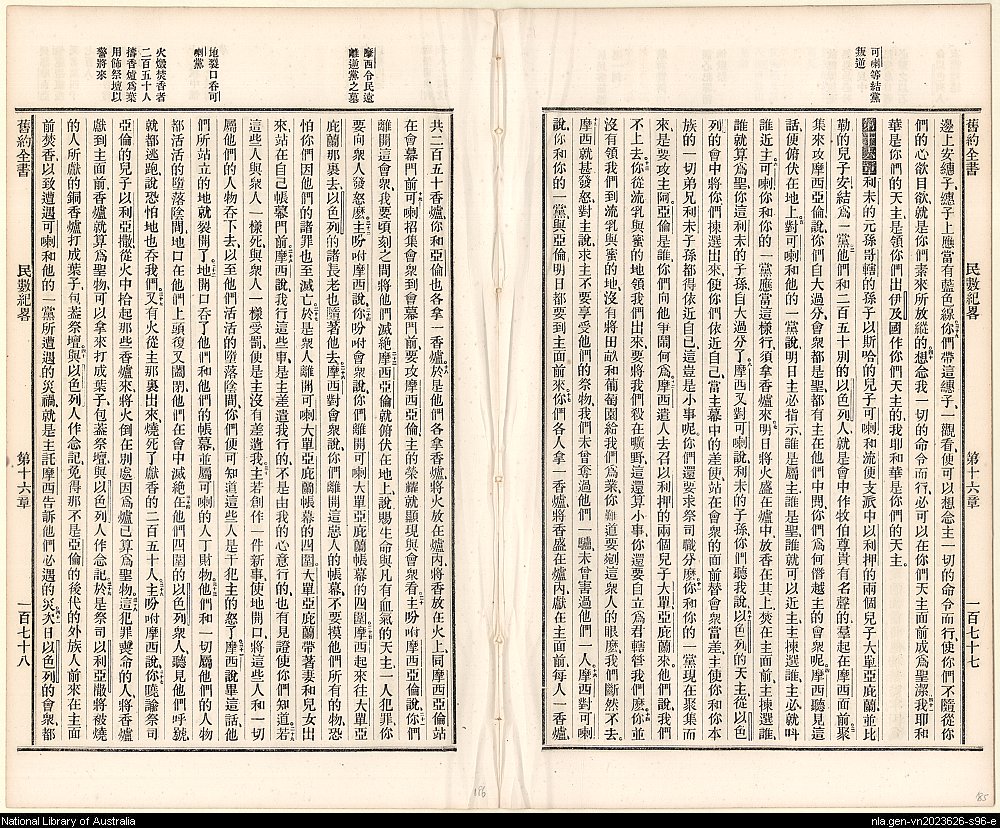 可喇等結黨
叛道
舊約全書 民數紀畧 第十六章 一百七十七
邊上安繐子、繐子上應當有藍色線、你們帶這繐子、一觀看便可以想念主一切的命令而行、使你們不隨從你
們的心欲目欲、就是你們素來所放縱的、想念我一切的命令而行、必可以在你們天主面前成爲聖潔、我耶和
華是你們的天主、是領你們出伊及國作你們天主的、我耶和華是你們的天主。
第十六章 利未的元孫哥轄的孫子以斯哈的兒子可喇、和流便支派中以利押的兩個兒子大單亞庇蘭、並比
勒的兒子安結爲一黨、他們和二百五十別的以色列人、就是會中作牧伯尊貴有名聲的、羣起在摩西面前、聚
集來攻摩西亞倫說、你們自大過分、會衆都是聖、都有主在他們中間、你們爲何僭越主的會衆呢、摩西聽見這
話、便俯伏在地上、對可喇和他的一黨說、明日主必指示誰是屬主、誰是聖、誰就可以近主、主揀選誰、主必就呌
誰近主、可喇、你和你的一黨應當這樣行、須拿香爐來、明日將火盛在爐中、放香在其上、焚在主面前、主揀選誰、
誰就算爲聖、你這利未的子孫自大過分了、摩西又對可喇說、利未的子孫、你們聽我說、以色列的天主、從以色
列的會中將你們揀選出來、使你們依近自己、當主幕中的差使、站在會衆的面前替會衆當差、主使你和你本
族的一切弟兄利未子孫、都得依近自己、這豈是小事呢、你們還要求祭司職分麼、你和你的一黨現在聚集、而
來是要攻主、阿亞倫是誰、你們向他爭鬧何爲、摩西遣人去召以利押的兩個兒子大單亞庇蘭來、他們說、我們
不上去、你從流乳與蜜的地領我們出來、要將我們殺在曠野、這還算小事、你還要自立爲君轄管我們麼、你並
沒有領我們到流乳與蜜的地、沒有將田畝和葡萄園給我們爲業、你難道要剜這衆人的眼麼、我們斷然不去。
摩西就甚發怒、對主說、求主不要享受他們的祭物、我們未曾奪過他們一驢、未曾害過他們一人、摩西對可喇
說、你和你的一黨與亞倫、明日都要到主面前來、你們各人拿一香爐、將香盛在爐內、獻在主面前、每人一香爐、
摩西令民遠
離逆黨之墓
地裂口吞可
喇黨
火燬焚香者
二百五十人
擣香爐爲葉
用飾祭壇以
警將來
共二百五十香爐、你和亞倫也各拿一香爐、於是他們各拿香爐、將火放在爐內、將香放在火上、同摩西亞倫站
在會幕門前、可喇招集會衆到會幕門前、要攻摩西亞倫、主的榮耀就顯現與會衆看、主吩咐摩西亞倫說、你們
離開這會衆、我要頃刻之間將他們滅絕、摩西亞倫就俯伏在地上、說、賜生命與凡有血氣的天主、一人犯罪、你
要向衆人發怒麼、主吩咐摩西說、你吩咐會衆說、你們離開可喇大單亞庇蘭帳幕的四圍、摩西起來往大單亞
庇蘭那裏去、以色列的諸長老也隨著他去、摩西對會衆說、你們離開這惡人的帳幕、不要摸他們所有的物、恐
怕你們因他們的諸罪也至滅亡、於是衆人離開可喇大單亞庇蘭帳幕的四圍、大單亞庇蘭帶著妻和兒女出
來、站在自己帳幕門前、摩西說、我行這些事、是主差遣我行的、不是由我的心意行的、也有見證使你們知道、若
這些人與衆人一樣死、與衆人一樣受罰、便是主沒有差遣我、主若創作一件新事、使地開口將這些人和一切
屬他們的人物吞下去、以至他們活活的墮落陰間、你們便可知道這些人是干犯主的怒了、摩西說畢這話、他
們所站立的地就裂開了、地開口吞了他們和他們的帳幕、並屬可喇的人丁財物、他們和一切屬他們的人物
都活活的墮落陰間、地口在他們上頭復又闔閉、他們在會中滅絕、在他們四圍的以色列衆人、聽見他們呼號
就都逃跑、說、恐怕地也吞我們、又有火從主那裏出來、燒死了獻香的二百五十人、主吩咐摩西說、你曉諭祭司
亞倫的兒子以利亞撒、從火中拾起那些香爐來、將火倒在別處、因爲爐已算爲聖物、這犯罪喪命的人、將香爐
獻到主面前、香爐就算爲聖物、可以拿來打成葉子、包葢祭壇、與以色列人作念記、於是祭司以利亞撒將被燒
的人所獻的銅香爐打成葉子、包葢祭壇、與以色列人作念記、免得那不是亞倫的後代的外族人前來在主面
前焚香、以致遭遇可喇和他的一黨所遭遇的災禍、就是主託摩西告訴他們必遇的災、次日以色列的會衆都
舊約全書 民數紀畧 第十六章 一百七十八
186
185
National Library of Australia
nla.gen-vn2023626-s96-e